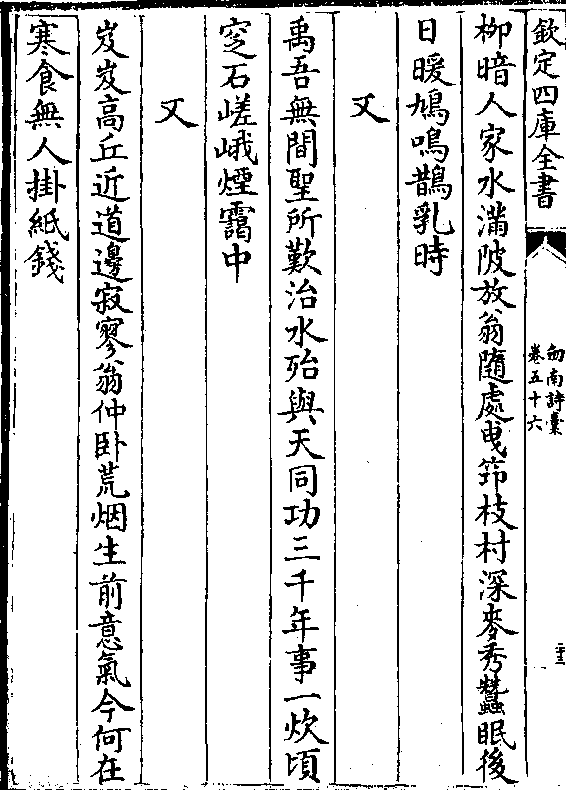 欽定四庫全書
劒南詩藁
卷五十六
柳暗人家水滿陂放翁隨處曳笻枝村深麥秀蠶眠後
日暖鳩鳴鵲乳時
又
禹吾無間聖所歎治水殆與天同功三千年事一炊頃
窆石嵯峨煙靄中
又
岌岌高丘近道邊寂寥翁仲卧荒烟生前意氣今何在
寒食無人掛紙錢